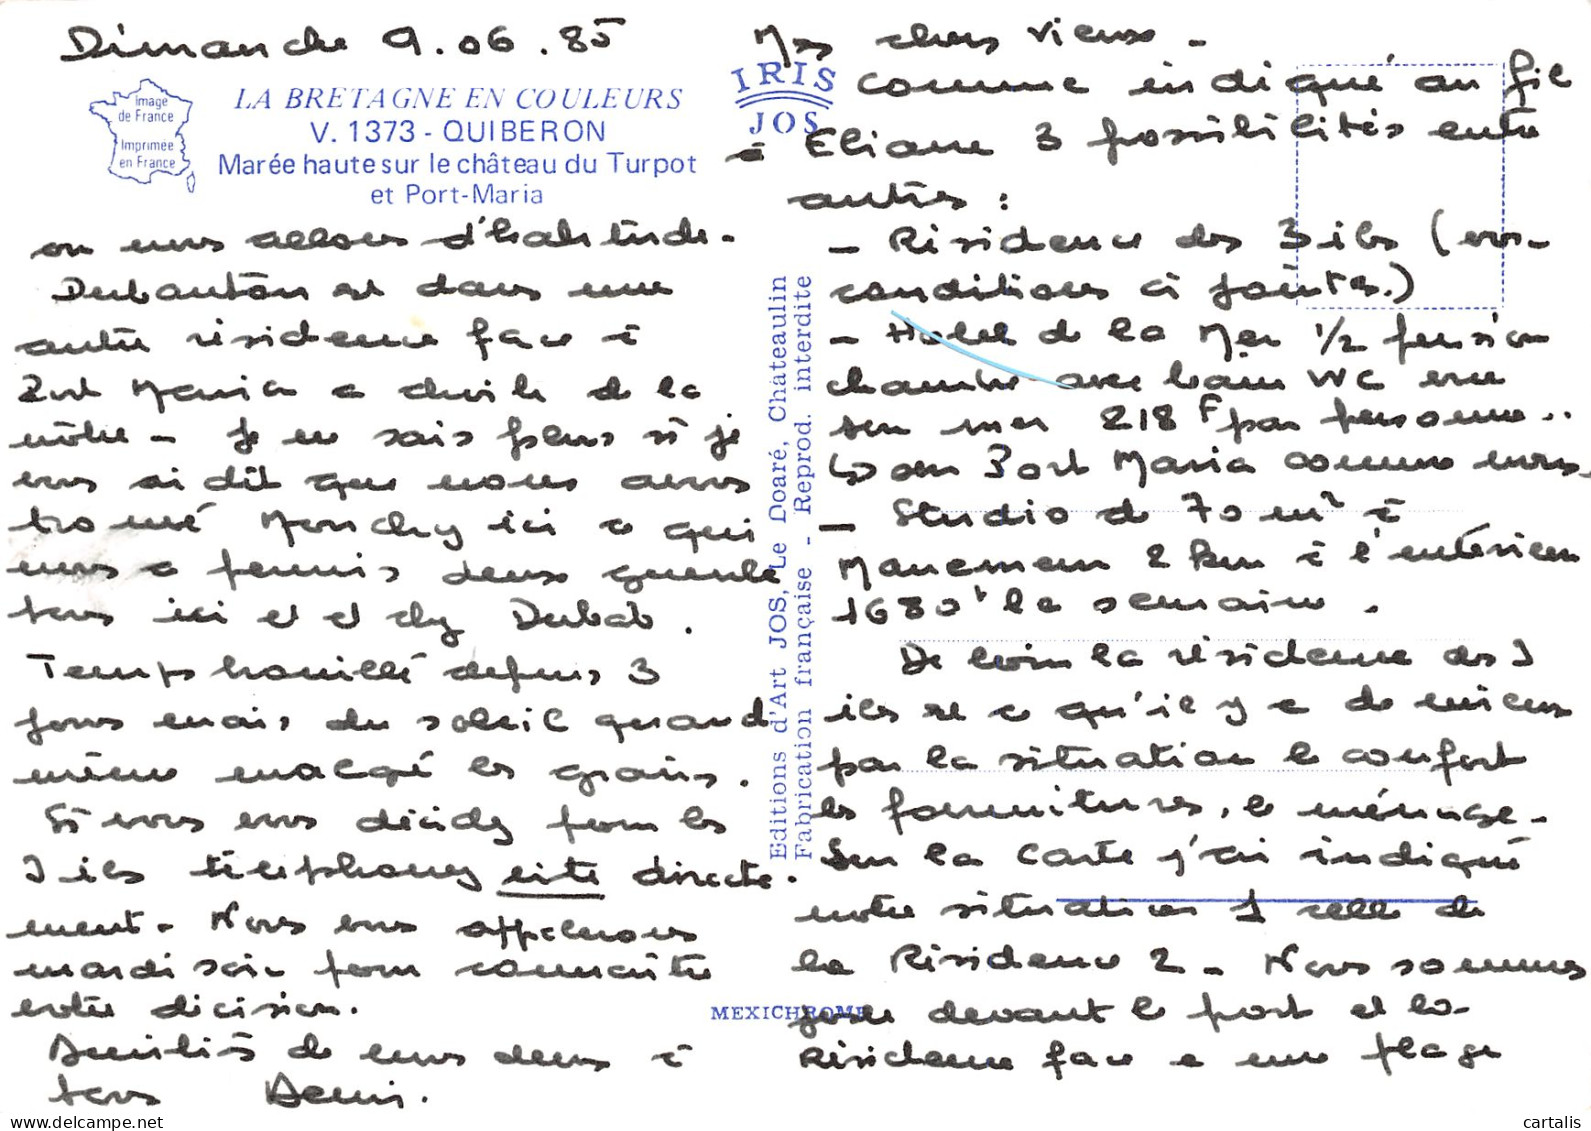 Dimanche 9.06.85
Image
de France
Imprimée
en France
LA BRETAGNE EN COULEURS
V. 1373 - QUIBERON
Marée haute sur le château du Turpot
et Port-Maria
IRIS
JOS
Mes chers vieux -
comme indiqué au fil
à Eliane 3 possibilités entre
autres :
- Résidence des 3 iles (vos
conditions ci jointes.)
- Hotel de la Mer 1/2 pension
chambre avec bain WC vue
sur mer 218 F par personne..
↳ au Port Maria comme nous
- Studio de 70 m² à
2 km à l'intérieur
1680 la semaine.
De loin la résidence des 3
iles est ce qu'il y a de mieux
par la situation le confort
les fournitures, le ménage -
Sur la carte j'ai indiqué
notre situation 1 celle de
la Résidence 2 - Nous sommes
juste devant le port et la
Résidence face à une plage
où nous allons d'habitude -
est dans une
autre résidence face à
Port Maria à droite de la
nôtre - Je ne sais plus si je
vous ai dit que nous avons
trouvé ici ce qui
nous a permis deux gueule
tons ici et et chez
Temps brouillé depuis 3
jours mais du soleil quand
même malgré les grains.
Si vous vous décidez pour les
3 iles téléphonez vite directe.
ment - Nous vous appellerons
mardi soir pour connaître
votre décision.
Amitiés de nous deux à
tous Denis.
Editions d'Art JOS, Le Doaré, Châteaulin
Fabrication française - Reprod. interdite
MEXICHROME
cartalis
www.delcampe.net